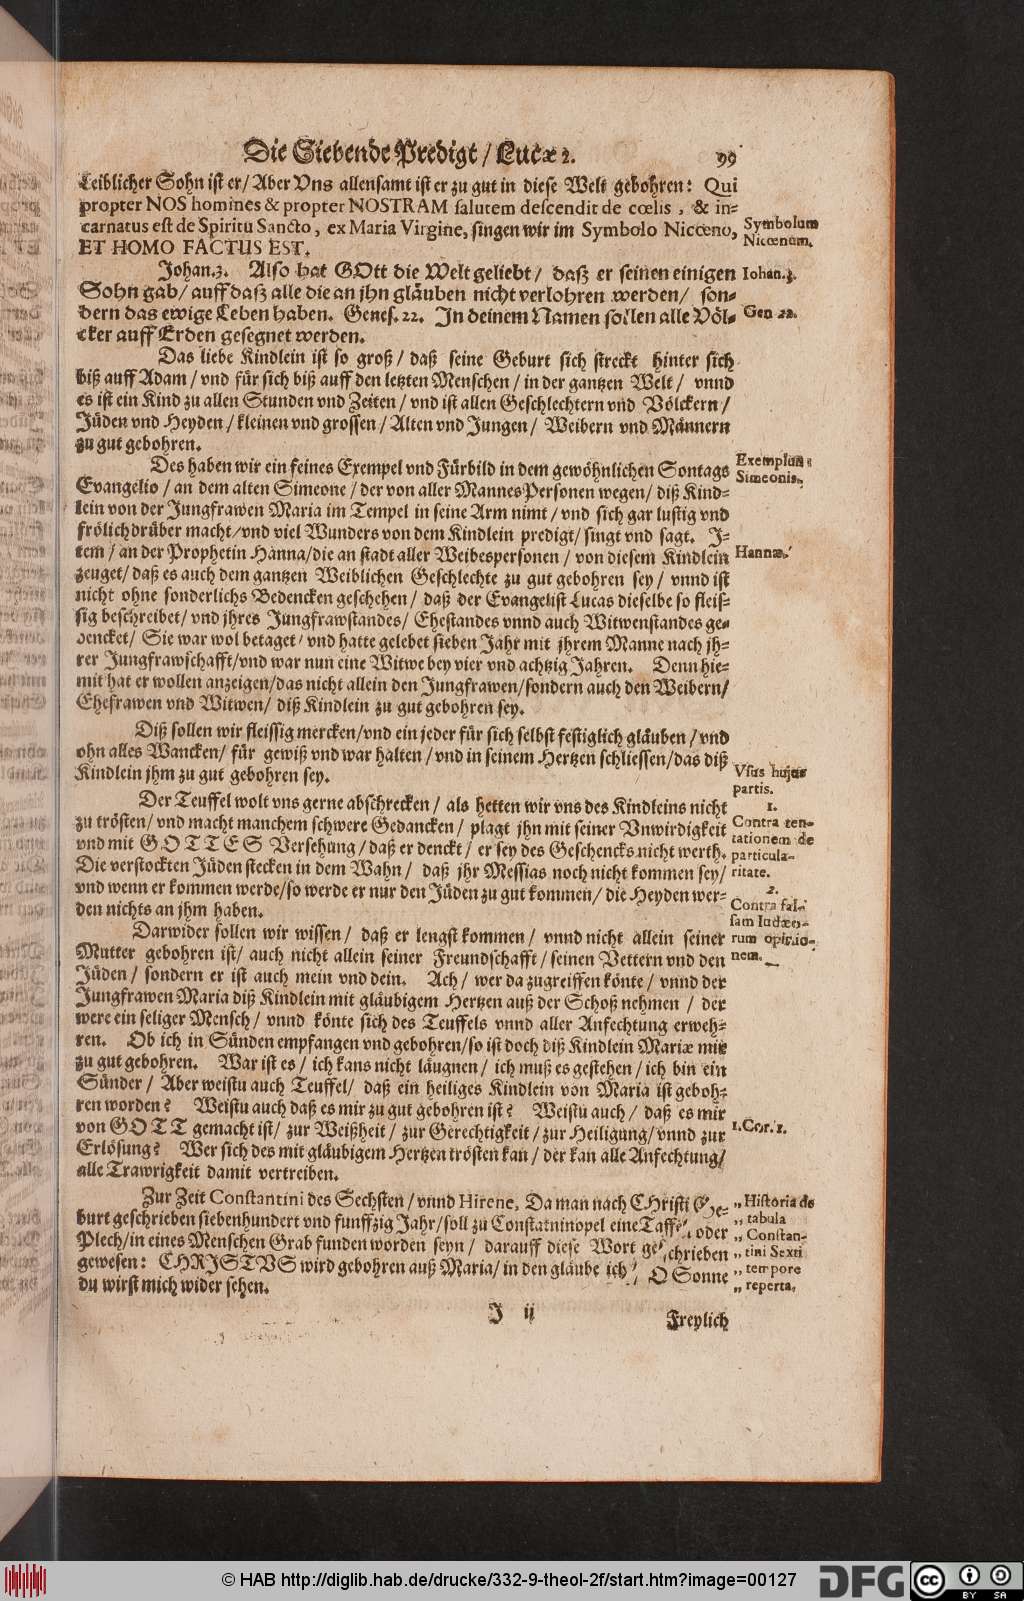 Die Siebende Predigt / Lucæ 2. 99
Leiblicher Sohn ist er / Aber Vns allensamt ist er zu gut in diese Welt gebohren: Qui
propter NOS homines & propter NOSTRAM salutem descendit de cœlis, & in-
carnatus est de Spiritu Sancto, ex Maria Virgine, singen wir im Symbolo Nicœno,
ET HOMO FACTUS EST.
Symbolum
Nicœnum.
Johan. 3. Also hat GOtt die Welt geliebt / daß er seinen einigen
Iohan. 3.
Sohn gab / auff daß alle die an jhn gläuben nicht verlohren werden / son-
dern das ewige Leben haben. Genes. 22. In deinem Namen sollen alle Völ-
Gen 22.
cker auff Erden gesegnet werden.
Das liebe Kindlein ist so groß / daß seine Geburt sich streckt hinter sich
biß auff Adam / vnd für sich biß auff den letzten Menschen / in der gantzen Welt / vnnd
es ist ein Kind zu allen Stunden vnd Zeiten / vnd ist allen Geschlechtern vnd Völckern /
Jüden vnd Heyden / kleinen vnd grossen / Alten vnd Jungen / Weibern vnd Männern
zu gut gebohren.
Des haben wir ein feines Exempel vnd Fürbild in dem gewöhnlichen Sontags
Exemplum
Simeonis.
Evangelio / an dem alten Simeone / der von aller Mannes Personen wegen / diß Kind-
lein von der Jungfrawen Maria im Tempel in seine Arm nimt / vnd sich gar lustig vnd
frölich drüber macht / vnd viel Wunders von dem Kindlein predigt / singt vnd sagt. I-
tem / an der Prophetin Hanna / die an stadt aller Weibespersonen / von diesem Kindlein
Hannæ.
zeuget / daß es auch dem gantzen Weiblichen Geschlechte zu gut gebohren sey / vnnd ist
nicht ohne sonderlichs Bedencken geschehen / daß der Evangelist Lucas dieselbe so fleis-
sig beschreibet / vnd jhres Jungfrawstandes / Ehestandes vnnd auch Witwenstandes ge-
dencket / Sie war wol betaget / vnd hatte gelebet sieben Jahr mit jhrem Manne nach jh-
rer Jungfrawschafft / vnd war nun eine Witwe bey vier vnd achtzig Jahren. Denn hie-
mit hat er wollen anzeigen / das nicht allein den Jungfrawen / sondern auch den Weibern /
Ehefrawen vnd Witwen / diß Kindlein zu gut gebohren sey.
Diß sollen wir fleissig mercken / vnd ein jeder für sich selbst festiglich gläuben / vnd
ohn alles Wancken / für gewiß vnd war halten / vnd in seinem Hertzen schliessen / das diß
Kindlein jhm zu gut gebohren sey.
Vsus hujus
partis.
Der Teuffel wolt vns gerne abschrecken / als hetten wir vns des Kindleins nicht
zu trösten / vnd macht manchem schwere Gedancken / plagt jhn mit seiner Vnwirdigkeit
vnd mit GOTTES Versehung / daß er denckt / er sey des Geschencks nicht werth.
1.
Contra ten-
tationem de
particula-
ritate.
Die verstockten Jüden stecken in dem Wahn / daß jhr Messias noch nicht kommen sey /
vnd wenn er kommen werde / so werde er nur den Jüden zu gut kommen / die Heyden wer-
den nichts an jhm haben.
2.
Contra fal-
sam Iudæo-
rum opinio-
nem.
Darwider sollen wir wissen / daß er lengst kommen / vnnd nicht allein seiner
Mutter gebohren ist / auch nicht allein seiner Freundschafft / seinen Vettern vnd den
Jüden / sondern er ist auch mein vnd dein. Ach / wer da zugreiffen könte / vnnd der
Jungfrawen Maria diß Kindlein mit gläubigem Hertzen auß der Schoß nehmen / der
were ein seliger Mensch / vnnd könte sich des Teuffels vnnd aller Anfechtung erweh-
ren. Ob ich in Sünden empfangen vnd gebohren / so ist doch diß Kindlein Mariæ mir
zu gut gebohren. War ist es / ich kans nicht läugnen / ich muß es gestehen / ich bin ein
Sünder / Aber weistu auch Teuffel / daß ein heiliges Kindlein von Maria ist geboh-
ren worden? Weistu auch daß es mir zu gut gebohren ist? Weistu auch / daß es mir
von GOTT gemacht ist / zur Weißheit / zur Gerechtigkeit / zur Heiligung / vnnd zur
1. Cor. 1.
Erlösung? Wer sich des mit gläubigem Hertzen trösten kan / der kan alle Anfechtung /
alle Trawrigkeit damit vertreiben.
Zur Zeit Constantini des Sechsten / vnnd Hirene, Da man nach CHristi Ge-
burt geschrieben siebenhundert vnd funffzig Jahr / soll zu Constatninopel eine Taffel oder
Plech / in eines Menschen Grab funden worden seyn / darauff diese Wort geschrieben
gewesen: CHRISTVS wird gebohren auß Maria / in den gläube ich / O Sonne
du wirst mich wider sehen.
„ Historia de
„ tabula
„ Constan-
„ tini Sexti
„ tempore
„ reperta.
J ij Freylich
© HAB http://diglib.hab.de/drucke/332-9-theol-2f/start.htm?image=00127
DFG
cc BY SA